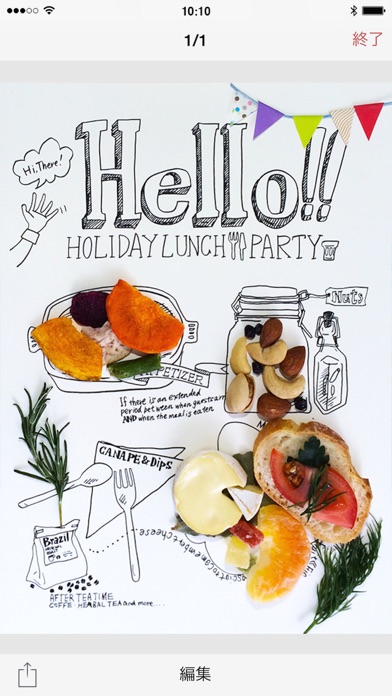 10:10
1/1
終了
Hi, There!
Hello!!
HOLIDAY LUNCH PARTY
Nuts
PETIZER
If there is an extended
period between when guests arri
AND when the meal is eaten
CANAPE & DIPS
Brazil
AFTER TEATIME
COFFE・HEMBAL TEA and more....
編集